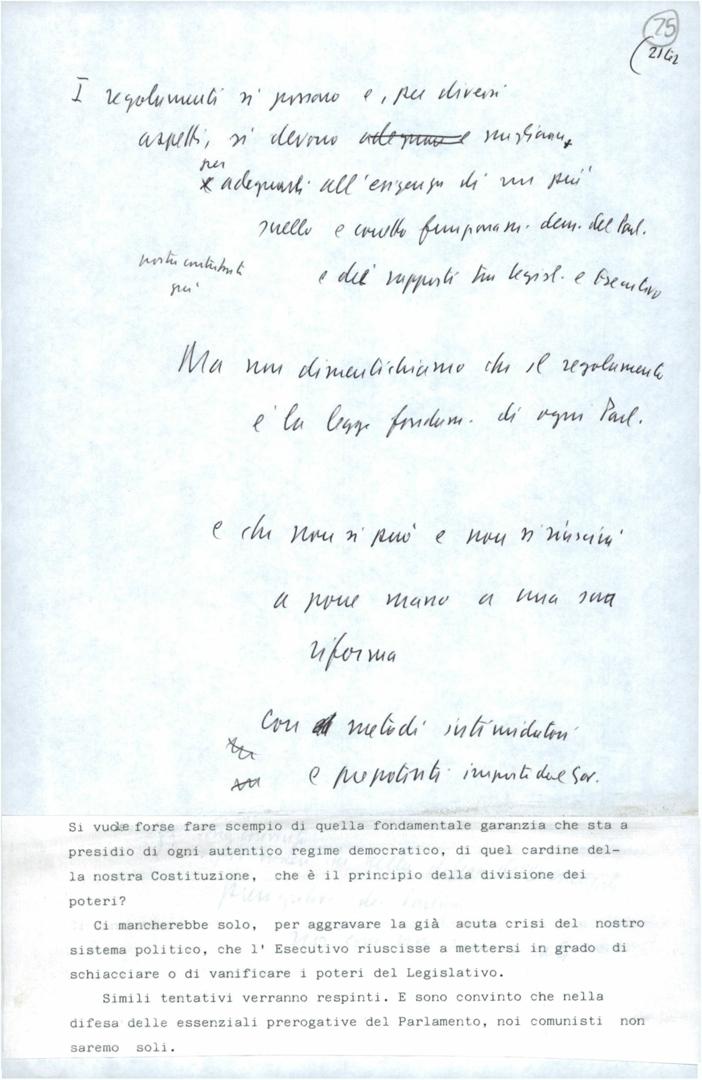 75
I regolamenti si possono e, per diversi
aspetti, si devono adeguare migliorare,
per
adeguarli all'esigenza di un più
snello e corretto funzionam. dem. del Parl.
nostri contributi
già
e dei rapporti tra legisl. e Esecutivo
Ma non dimentichiamo che il regolamento
è la legge fondam. di ogni Parl.
e che non si può e non si riuscirà
a porre mano a una sua
riforma
con metodi intimidatori
e prepotenti imposti dal Gov.
Si vuole forse fare scempio di quella fondamentale garanzia che sta a
presidio di ogni autentico regime democratico, di quel cardine del-
la nostra Costituzione, che è il principio della divisione dei
poteri?
Ci mancherebbe solo, per aggravare la già acuta crisi del nostro
sistema politico, che l' Esecutivo riuscisse a mettersi in grado di
schiacciare o di vanificare i poteri del Legislativo.
Simili tentativi verranno respinti. E sono convinto che nella
difesa delle essenziali prerogative del Parlamento, noi comunisti non
saremo soli.